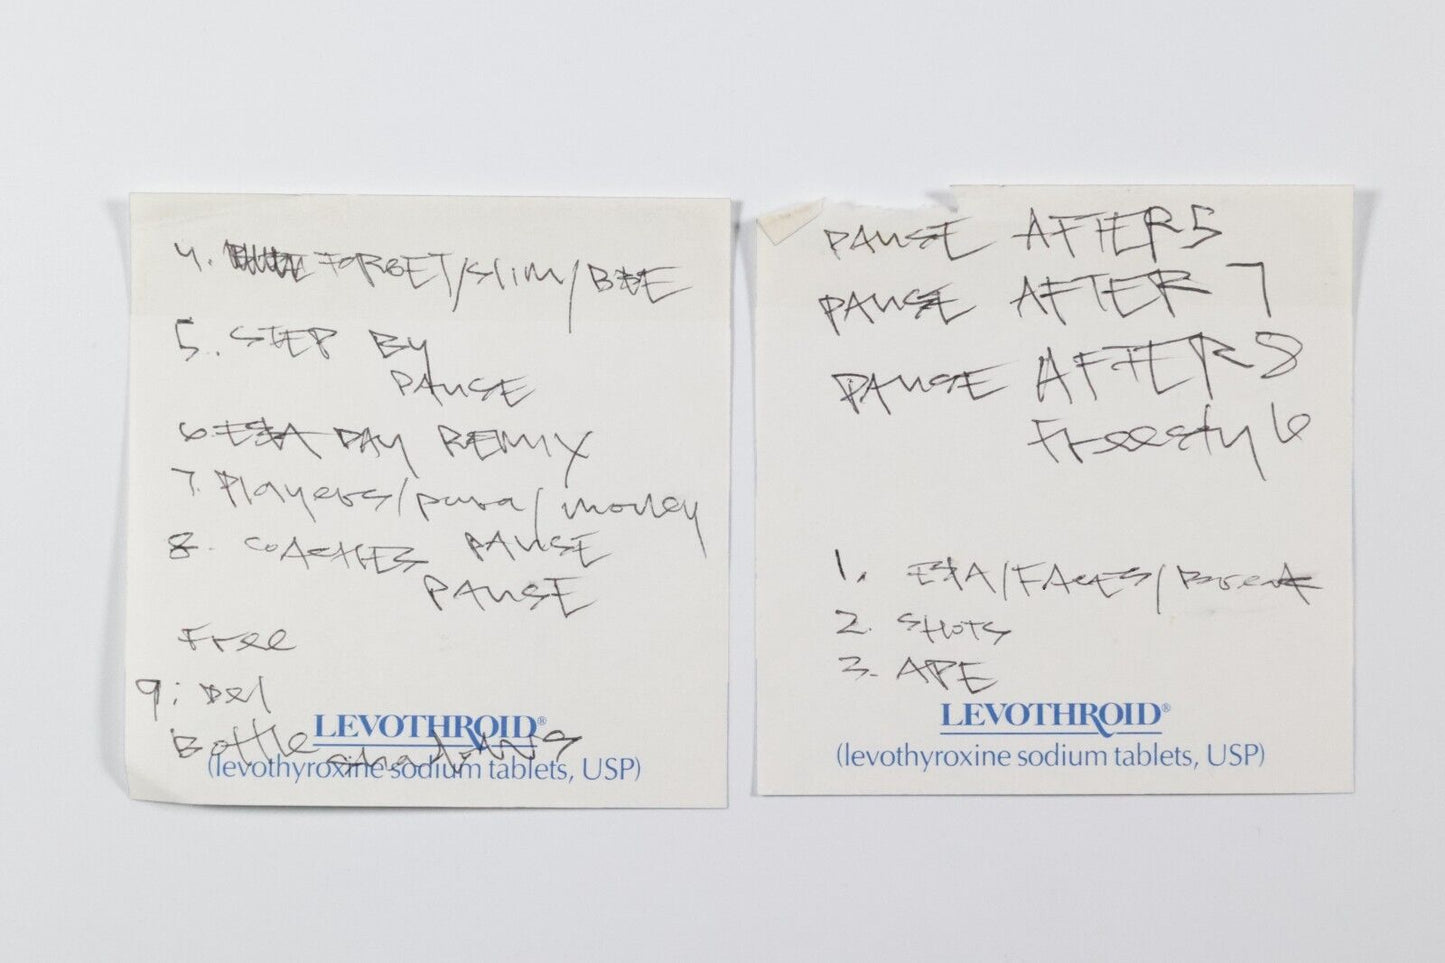 4. FORGET/slim/BEE
5. STEP BY
PAUSE
6. E$A DAY REMIX
7. Players/pura/money
8. COACHES PAUSE
PAUSE
Free
9. Del
Bottle
LEVOTHROID®
(levothyroxine sodium tablets, USP)
PAUSE AFTER 5
PAUSE AFTER 7
PAUSE AFTER 8
Freestyle
1. E$A/FACES/Break
2. SHOTS
3. APE
LEVOTHROID®
(levothyroxine sodium tablets, USP)